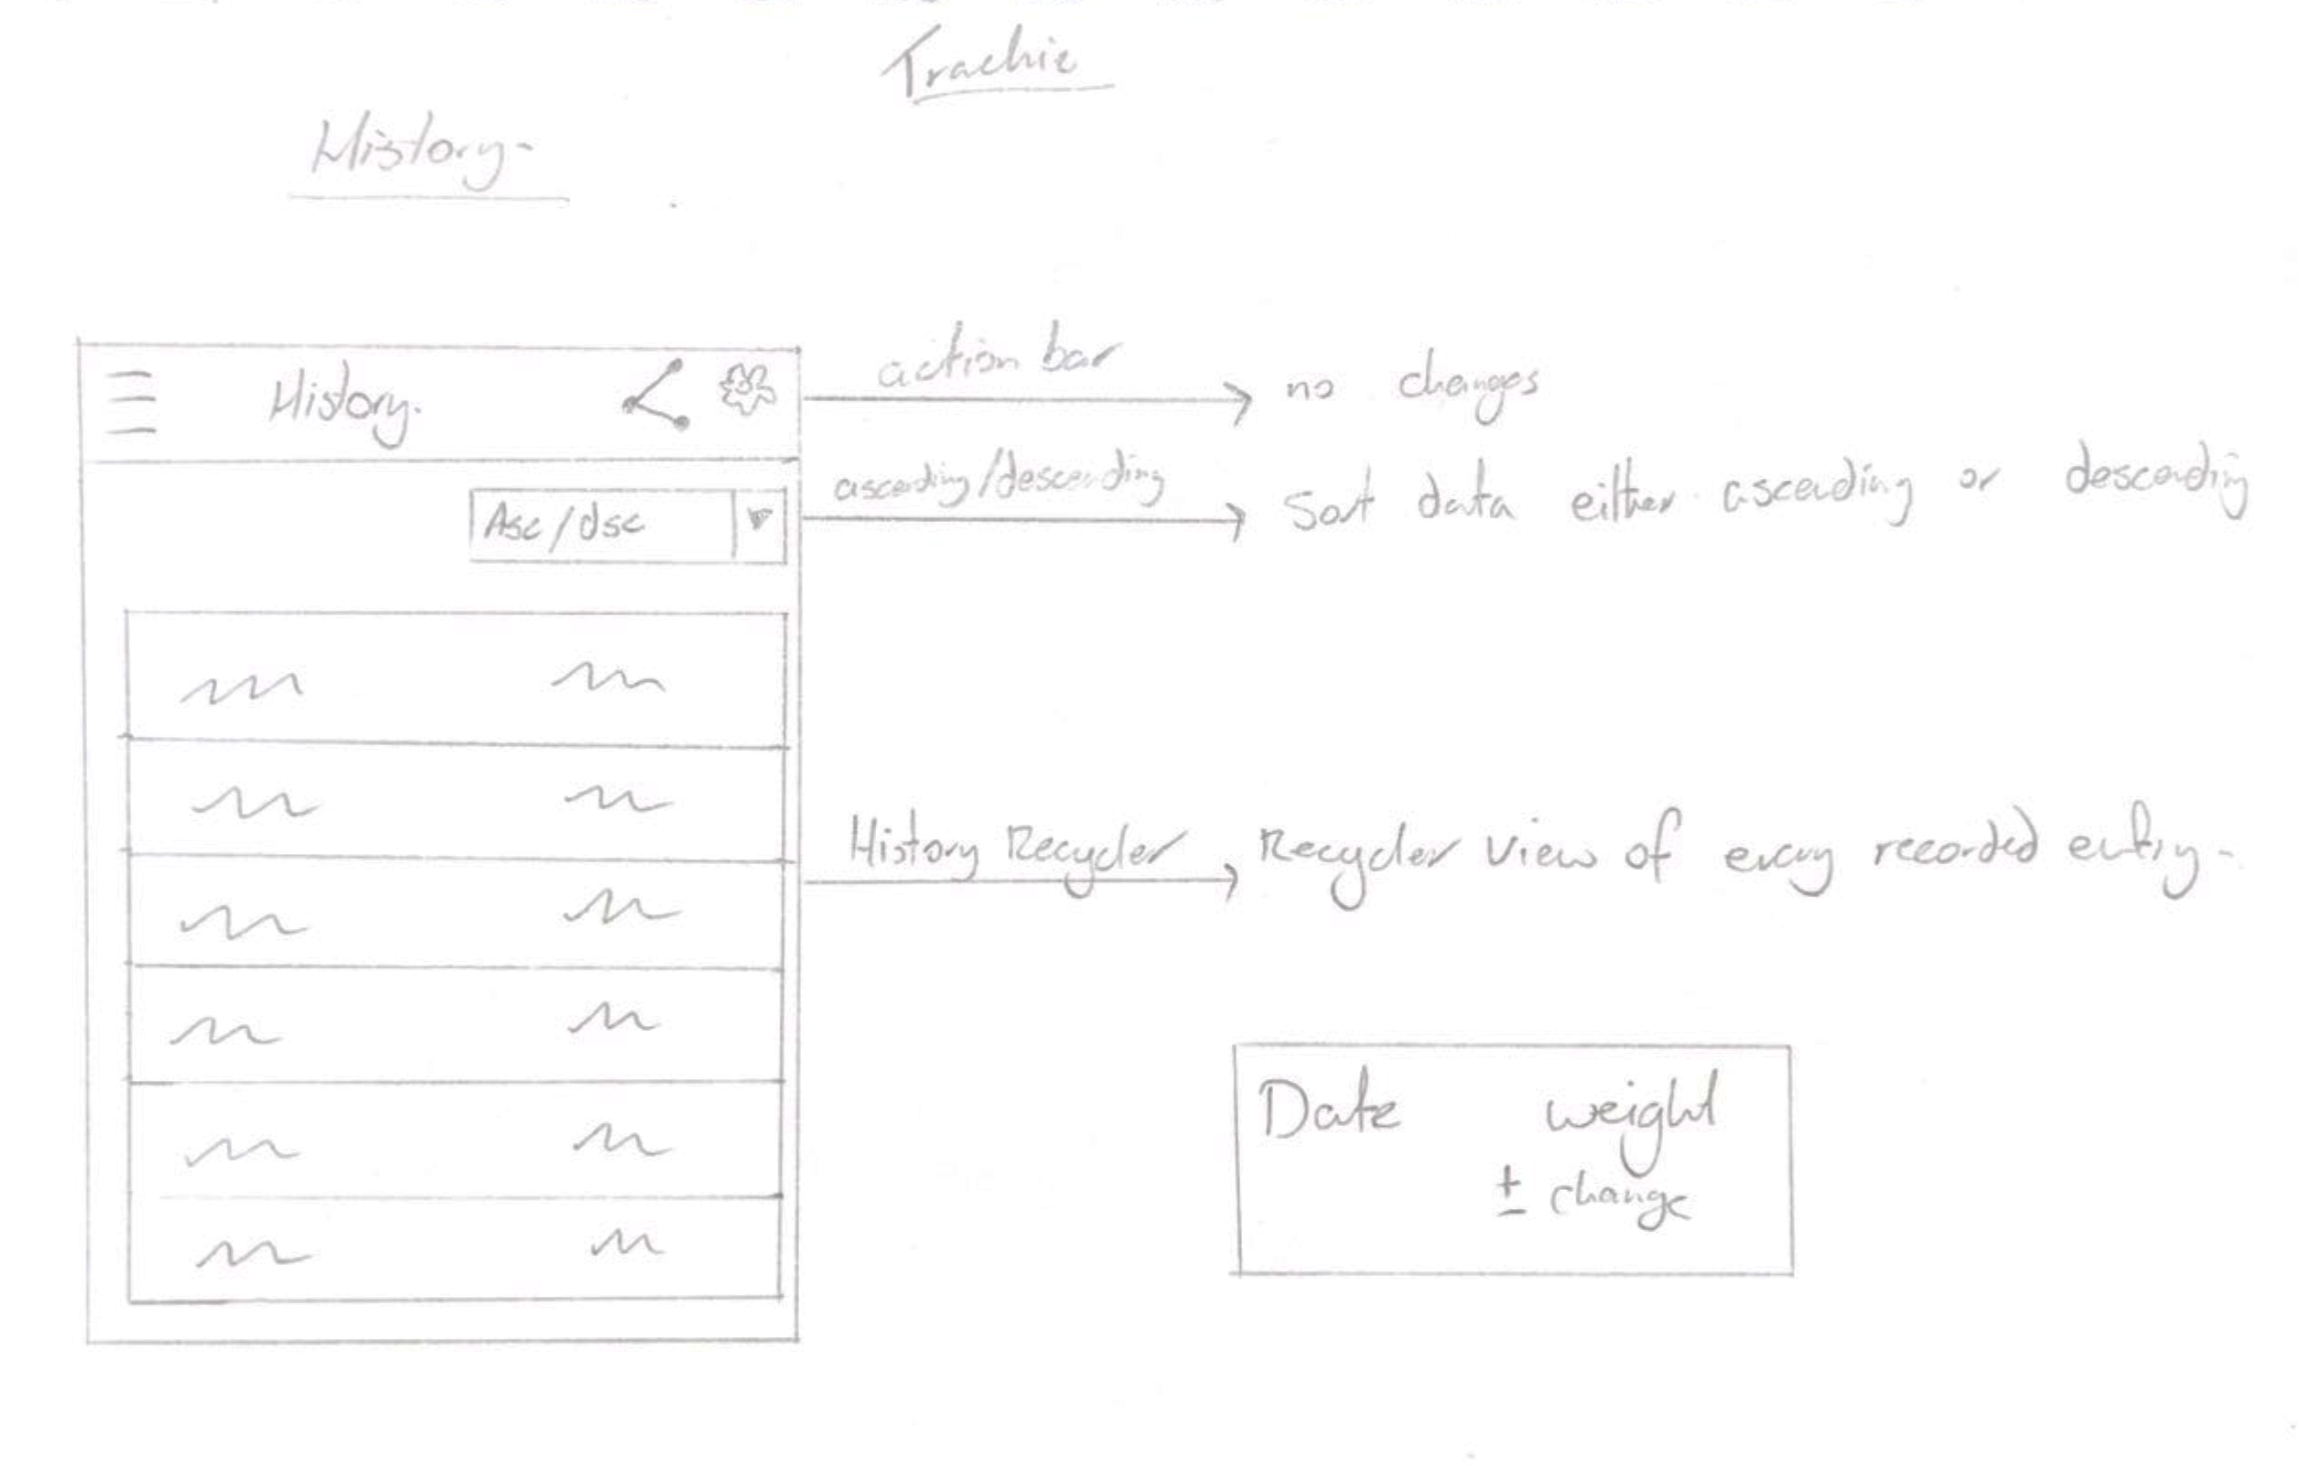 Trackie
History
History.
action bar
no changes
ascending/descending
Sort data either ascending or descending
Asc/dsc
History Recycler
Recycler view of every recorded entry.
Date weight
± change